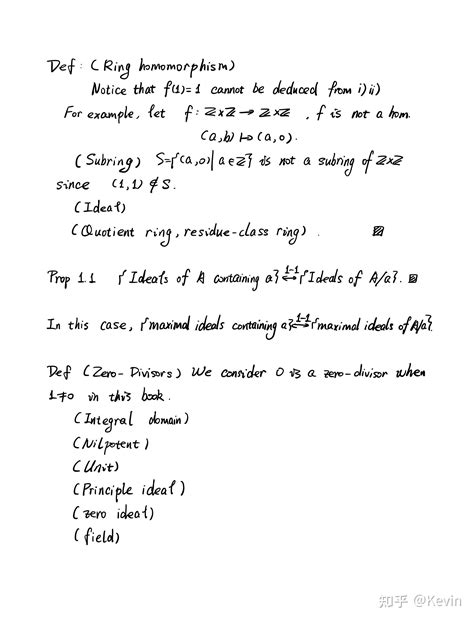 Def: (Ring homomorphism)
Notice that f(1)=1 cannot be deduced from i) ii)
For example, let f: Z×Z → Z×Z, f is not a hom.
(a,b) ↦ (a,0).
(Subring) S={(a,0)| a∈Z} is not a subring of Z×Z
since (1,1) ∉ S.
(Ideal)
(Quotient ring, residue-class ring).
Prop 1.1 {Ideals of A containing a} ↔ 1-1 {Ideals of A/a}.
In this case, {maximal ideals containing a} ↔ 1-1 {maximal ideals of A/a}.
Def (Zero-Divisors) We consider 0 is a zero-divisor when
1≠0 in this book.
(Integral domain)
(Nilpotent)
(Unit)
(Principle ideal)
(zero ideal)
(field)
知乎 @Kevin